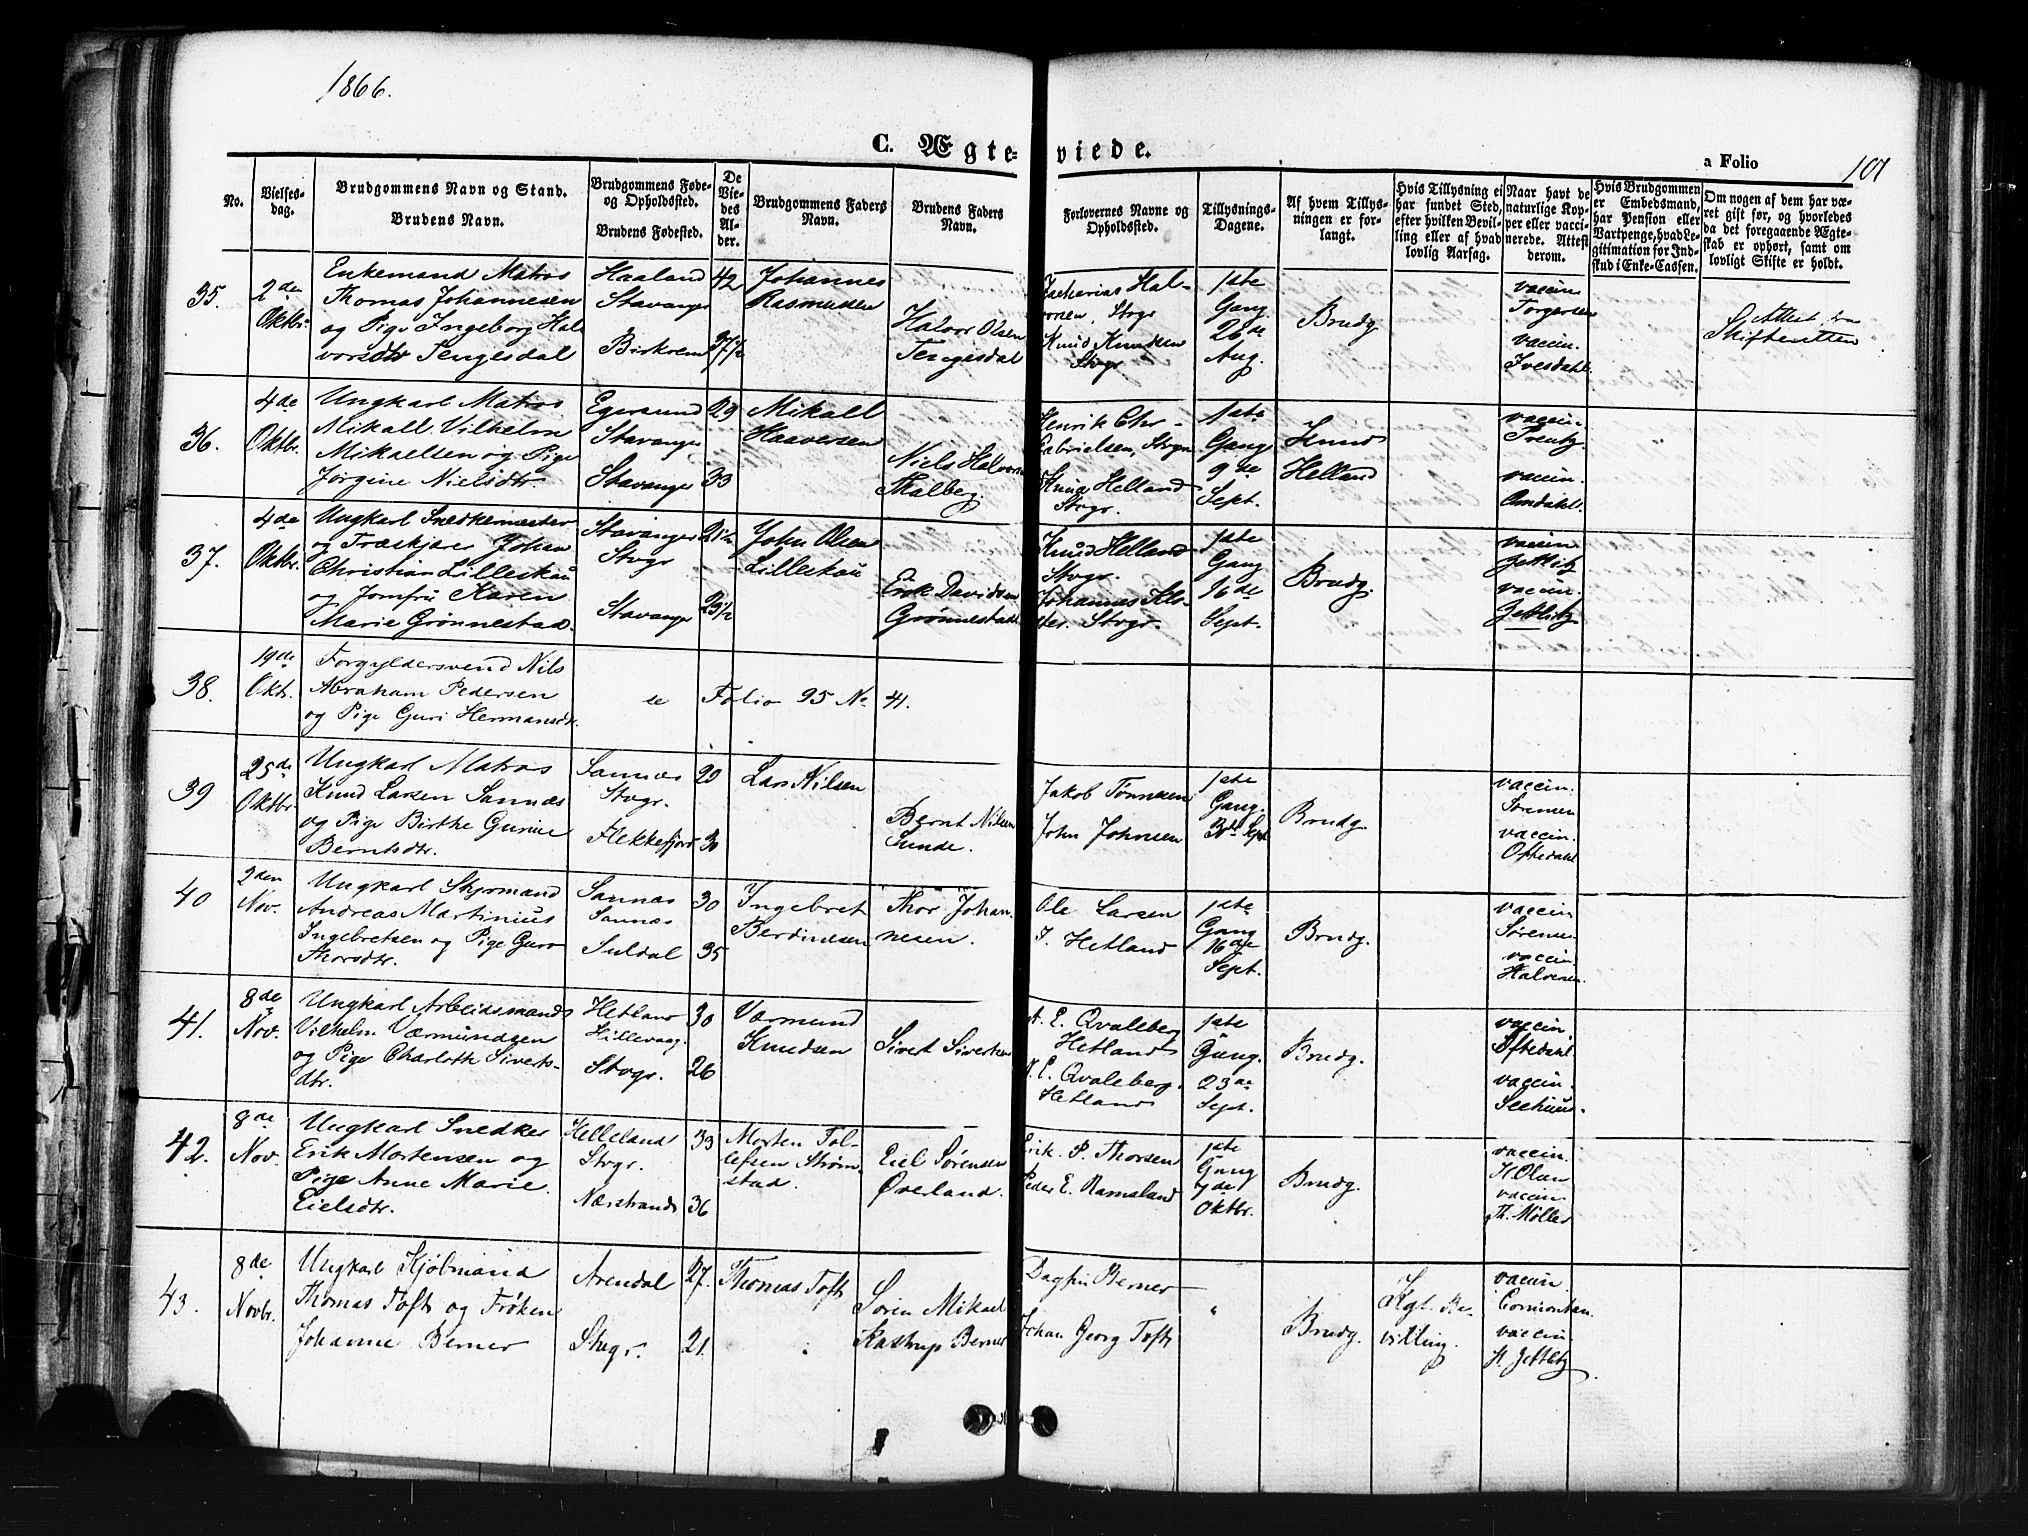 1866.
C. Ægteviede.
a Folio 101
No.
Vielsesdag.
Brudgommens Navn og Stand.
Brudens Navn.
Brudgommens Føde- og Opholdssted.
Brudens Fødested.
De Viedes Alder.
Brudgommens Faders Navn.
Brudens Faders Navn.
Forlovernes Navne og Opholdssted.
Tillysnings-Dagene.
Af hvem Tillysningen er forlangt.
Hvis Tillysning ei har fundet Sted, efter hvilken Bevilling eller af hvad lovlig Aarsag.
Naar havt de naturlige Kopper eller vaccinerede. Attest derom.
Hvis Brudgommen er Embedsmand, har Pension eller Vartpenge, hvad Legitimation for Indskud i Enke-Cassen.
Om nogen af dem har været gift før, og hvorledes da det foregaaende Ægteskab er ophørt, samt om lovligt Skifte er holdt.
35.
2den Oktbr.
Enkemand Matros
Thomas Johannesen
og Pige Ingeborg Hal
vorsdtr Tengesdal
Haaland
Stavanger
Birkrem
42
37½
Johannes
Rasmusen
Halvor Olsen
Tengesdal
Zacharias Hal-
vorsen, Stvgr
Knud Knudsen
Stvgr
1ste
Gang
26de
Aug.
Brudg.
vaccin.
Torgersen
vaccin.
Ivesdahl.
Attest fra
Skifteretten
36.
4de
Oktbr.
Ungkarl Matros
Mikall Vilhelm
Mikaelsen og Pige
Jørgine Nielsdtr.
Egersund
Stavanger
Stavanger
29
33
Mikall
Haaversen
Niels Halvorsen
Thalberg.
Henrik Chr-
Gabrielsen, Stvgr
Knud Helland
Stvgr.
1ste
Gang
9de
Sept.
Knud
Helland
vaccin.
vaccin.
37.
4de
Oktbr.
Ungkarl Snedkermester
og Træskjærer Johan
Christian Lilleskau
og Jomfru Karen
Marie Grønnestad.
Stavanger
Stvgr
Stavanger
21½
23½
John Olsen
Lilleskau
Erik Davidsen
Grønnestad
Knud Helland
Stvgr.
Johannes Klo-
ster. Stvgr.
1ste
Gang
16de
Sept.
Brudg.
vaccin.
Zetlitz
vaccin.
Zetlitz
38.
19de
Okt.
Forgyldersvend Nils
Abraham Pedersen
og Pige Guri Hermansdtr.
se Folio 95 No 41.
39
25de
Oktbr.
Ungkarl Matros
Knud Larsen Sannæs
og Pige Birthe Gurine
Berntsdtr.
Sannæs
Stvgr.
Flekkefjord
20
30
Lars Nilsen
Bernt Nilsen
Sunde.
Jakob Tønnesen
John Johnsen
1ste
Gang.
30te Sept
Brudg.
vaccin.
Sørensen
vaccin.
Oftedahl
40
2den
Nov.
Ungkarl Styrmand
Andreas Martinius
Ingebretsen og Pige Guro
Thorsdtr.
Sannæs
Sannæs
Suldal
30
35
Ingebret
Berdinesen
Thor Johan-
nesen.
Ole Larsen
T. Hetland
1ste
Gang
16de
Sept.
Brudg.
vaccin
vaccin
Halvorsen.
41.
8de
Nov.
Ungkarl Arbeidsmand
Vilhelm Værmundsen
og Pige Charlotte Siverts-
dtr.
Hetland
Hillevaag.
Stvgr.
30
26
Værmund
Knudsen
Sivert Sivertsen
A. E. Qvaleberg
Hetland
E. Qvaleberg.
Hetland
1ste
Gang.
23de
Sept.
Brudg.
vaccin.
Oftedahl
vaccin.
Seehuus.
42.
8de
Nov.
Ungkarl Snedker
Erik Mortensen og
Pige Anne Marie
Eielsdtr.
Helleland
Stvgr.
Nærstrand
33
36
Morten Tol-
lefsen Strøm-
stad.
Eiel Sørensen
Øverland.
Erik P. Thorsen
Peder E. Ramsland
1ste
Gang
7de
Oktbr.
Brudg.
vaccin.
vaccin
Th. Møller
43.
8de
Novbr.
Ungkarl Kjøbmand
Thomas Toft og Frøken
Johanne Berner
Arendal
Stvgr.
27.
21.
Thomas Toft
Søren Mikael
Kastrup Berner
Dagfin Berner
Johan Georg Toft
"
Brudg.
Kgl. Be-
villing.
vaccin
vaccin.
A. Zetlitz